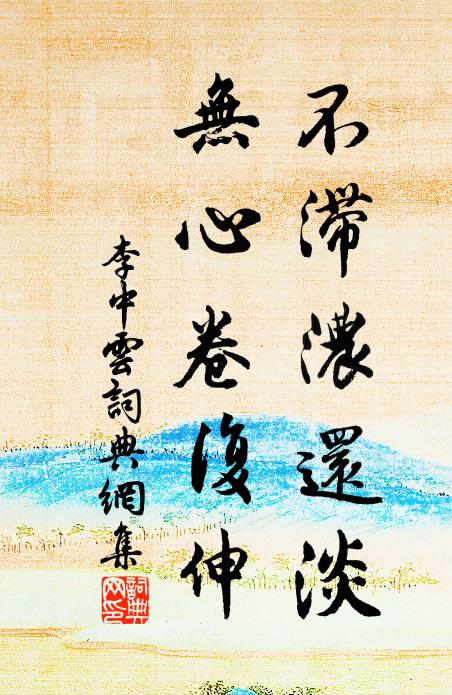 不滯濃還淡
無心卷復伸
李中雲詞典網集
詞典網印